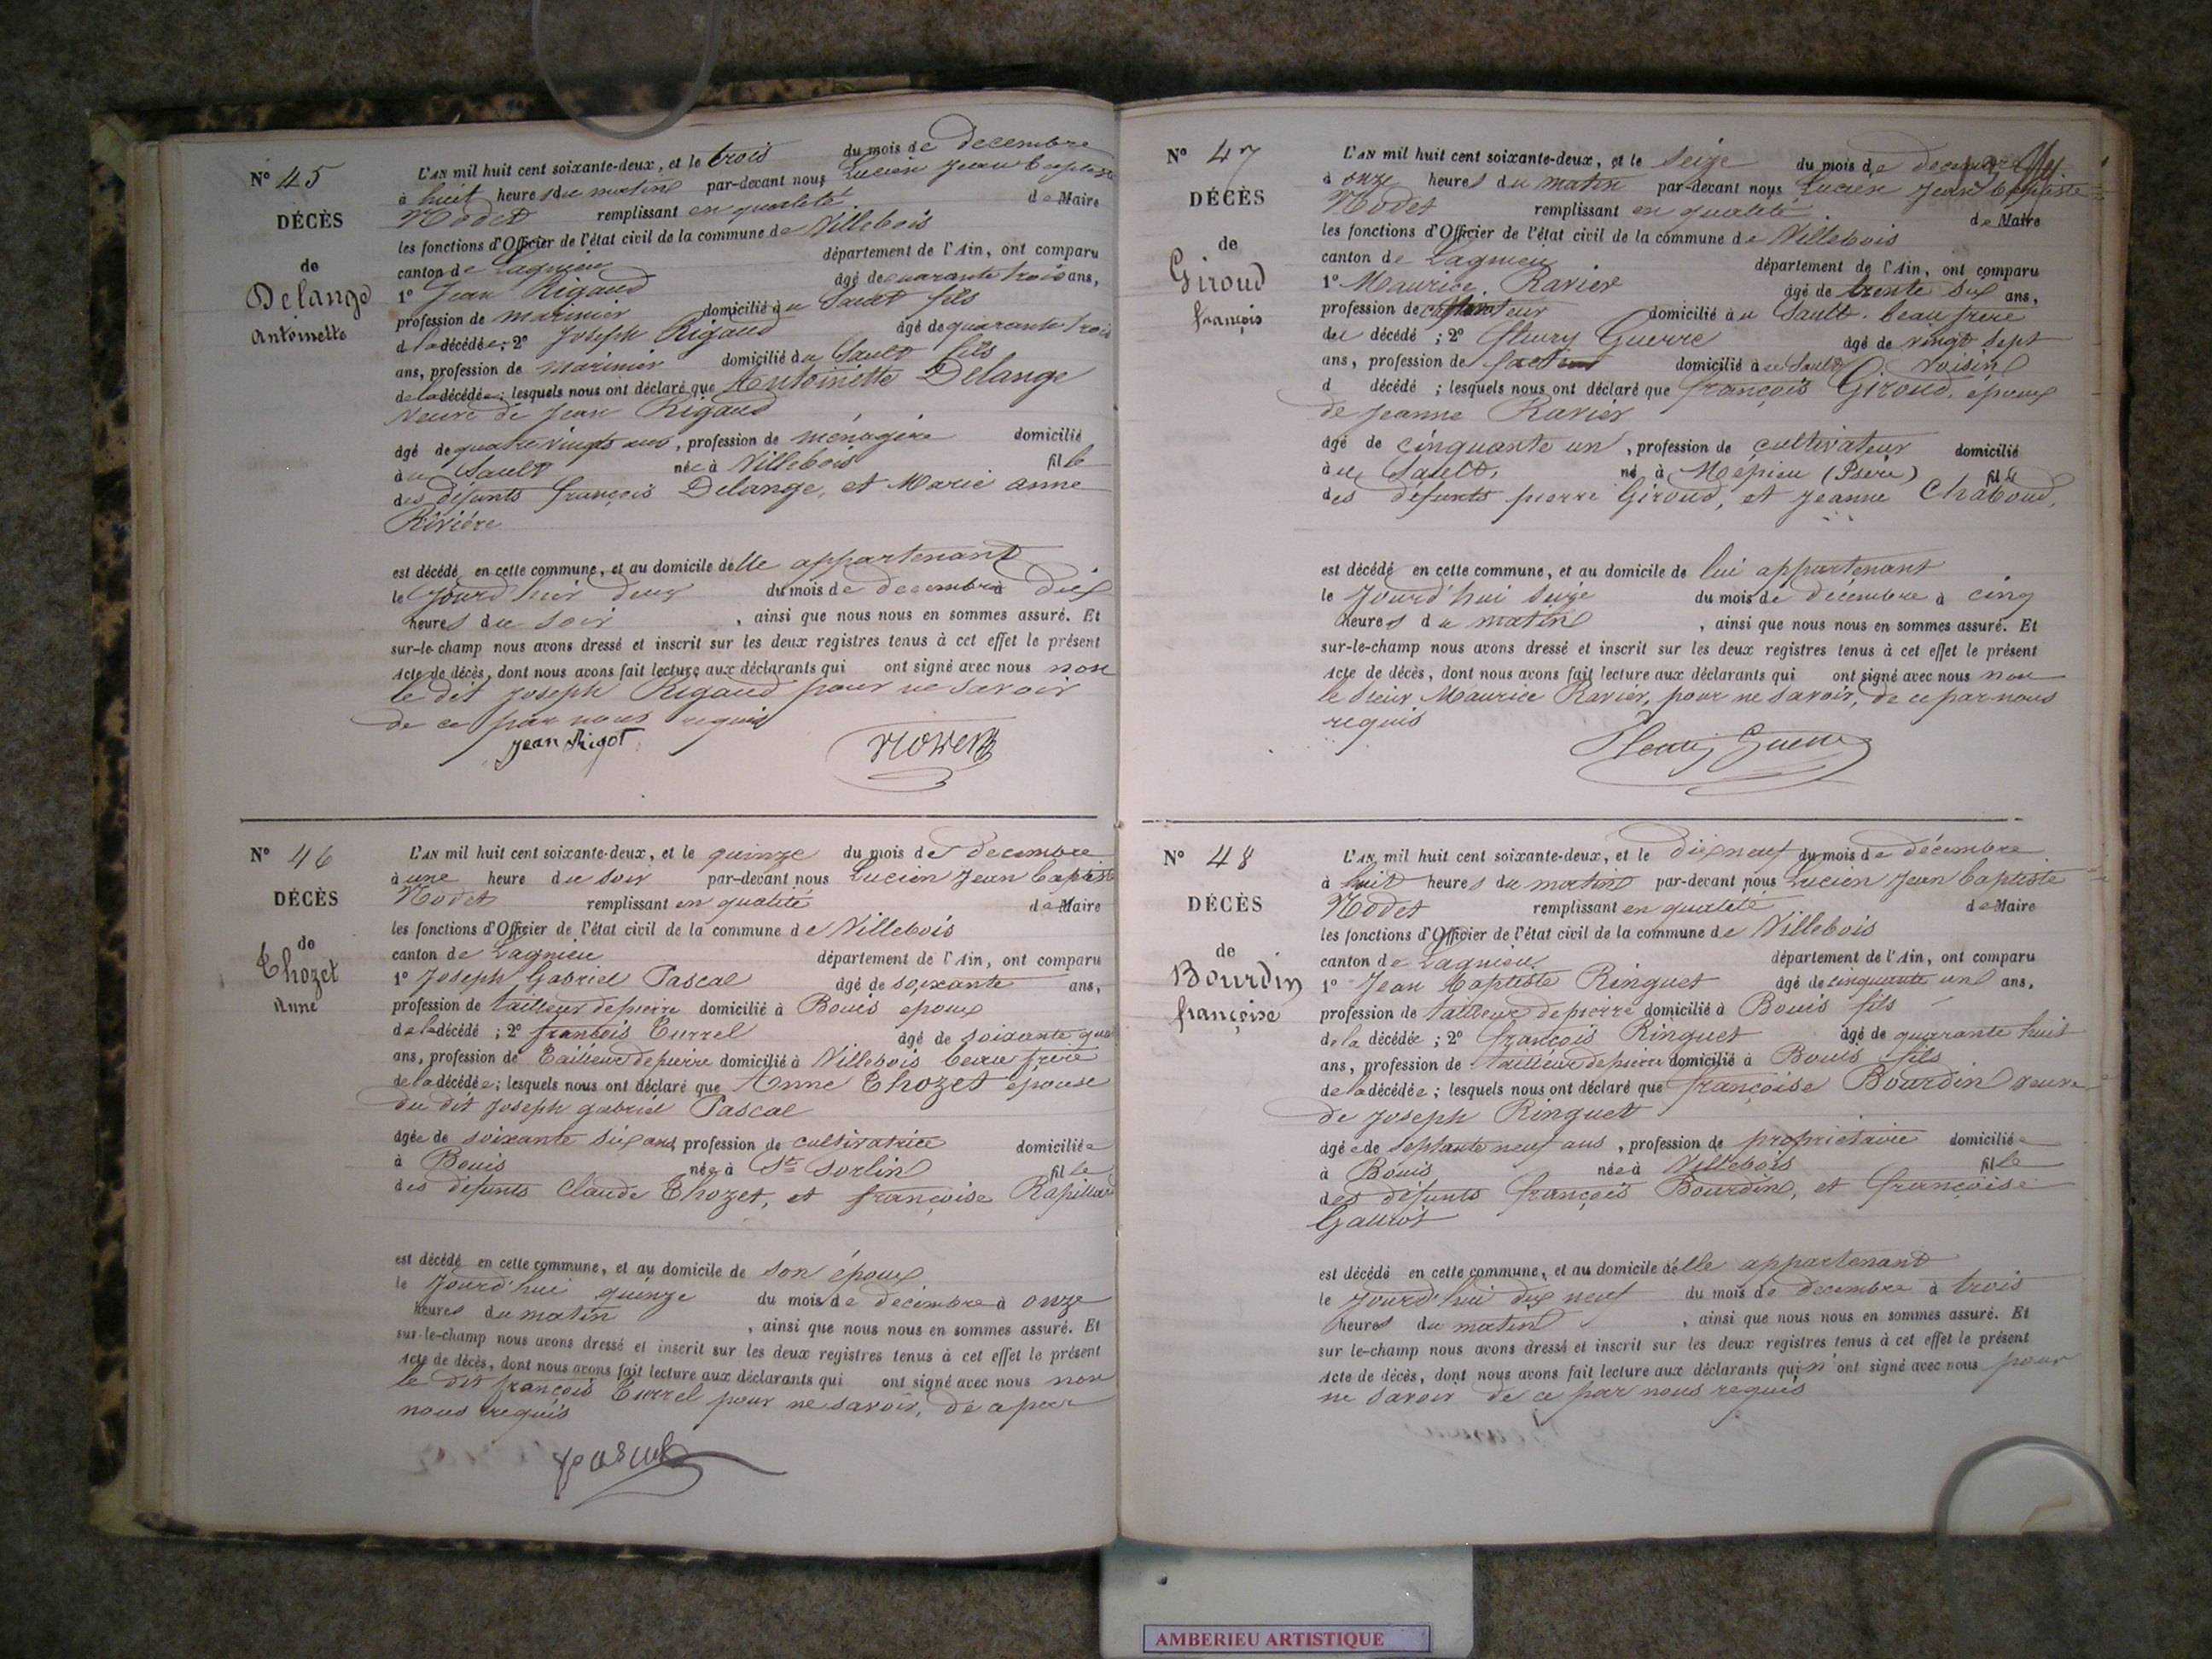 N° 45
DÉCÈS
de
Delange
Antoinette
L'AN mil huit cent soixante-deux, et le trois du mois de decembre
à huit heures du matin par-devant nous Lucien Jean baptiste
Nodet remplissant en qualité de Maire
les fonctions d'Officier de l'état civil de la commune de Villebois
canton de Lagnieu département de l'Ain, ont comparu
1° Jean Rigaud âgé de quarante trois ans,
profession de marinier domicilié au Sault fils
de la décédée; 2° Joseph Rigaud âgé de quarante trois
ans, profession de marinier domicilié au Sault fils
de la décédée; lesquels nous ont déclaré que Antoinette Delange
veuve de Jean Rigaud
âgé de quatre vingts ans, profession de ménagère domicilié
à au Sault née à Villebois fille
des défunts françois Delange, et Marie anne
Rivière
est décédé en cette commune, et au domicile d'elle appartenant
le jourd'hier deux du mois de decembre à dix
heures du soir, ainsi que nous nous en sommes assuré. Et
sur-le-champ nous avons dressé et inscrit sur les deux registres tenus à cet effet le présent
Acte de décès, dont nous avons fait lecture aux déclarants qui ont signé avec nous non
le dit Joseph Rigaud pour ne savoir
de ce par nous requis
Jean Rigot
N° 46
DÉCÈS
de
Thozet
Anne
L'AN mil huit cent soixante-deux, et le quinze du mois de decembre
à une heure du soir par-devant nous Lucien Jean baptiste
Nodet remplissant en qualité de Maire
les fonctions d'Officier de l'état civil de la commune de Villebois
canton de Lagnieu département de l'Ain, ont comparu
1° Joseph Gabriel Pascal âgé de soixante ans,
profession de tailleur de pierre domicilié à Bouis epoux
de la décédé; 2° françois Turrel âgé de soixante
ans, profession de Tailleur de pierre domicilié à Villebois beau frère
de la décédée; lesquels nous ont déclaré que Anne Thozet épouse
du dit Joseph gabriel Pascal
âgée de soixante six ans, profession de cultivatrice domiciliée
à Bouis née à St Sorlin fille
des défunts Claude Thozet, et françoise
est décédé en cette commune, et au domicile de son époux
le jourd'hui quinze du mois de decembre à onze
heures du matin, ainsi que nous nous en sommes assuré. Et
sur-le-champ nous avons dressé et inscrit sur les deux registres tenus à cet effet le présent
Acte de décès, dont nous avons fait lecture aux déclarants qui ont signé avec nous non
le dit françois Turrel pour ne savoir, de ce par
nous requis
Pascal
N° 47
DÉCÈS
de
Giroud
françois
L'AN mil huit cent soixante-deux, et le seize du mois de decembre
à onze heures du matin par-devant nous Lucien Jean baptiste
Nodet remplissant en qualité de Maire
les fonctions d'Officier de l'état civil de la commune de Villebois
canton de Lagnieu département de l'Ain, ont comparu
1° Maurice Ravier âgé de trente six ans,
profession de domicilié à au Sault beau frère
du décédé; 2° fleury Guerre âgé de vingt sept
ans, profession de domicilié à au Sault voisin
d décédé; lesquels nous ont déclaré que françois Giroud, époux
de Jeanne Ravier
âgé de cinquante un, profession de cultivateur domicilié
à au Sault, né à Mépieu (Isère) fils
des défunts pierre Giroud, et Jeanne Chaboud,
est décédé en cette commune, et au domicile de lui appartenant
le jourd'hui seize du mois de décembre à cinq
heures du matin, ainsi que nous nous en sommes assuré. Et
sur-le-champ nous avons dressé et inscrit sur les deux registres tenus à cet effet le présent
Acte de décès, dont nous avons fait lecture aux déclarants qui ont signé avec nous non
le sieur Maurice Ravier, pour ne savoir, de ce par nous
requis
Fleury Guerre
N° 48
DÉCÈS
de
Bourdin
françoise
L'AN mil huit cent soixante-deux, et le dix neuf du mois de décembre
à huit heures du matin par-devant nous Lucien Jean baptiste
Nodet remplissant en qualité de Maire
les fonctions d'Officier de l'état civil de la commune de Villebois
canton de Lagnieu département de l'Ain, ont comparu
1° Jean Baptiste Ringuet âgé de cinquante un ans,
profession de tailleur de pierre domicilié à Bouis fils
de la décédée; 2° françois Ringuet âgé de quarante huit
ans, profession de tailleur de pierre domicilié à Bouis fils
de la décédée; lesquels nous ont déclaré que françoise Bourdin veuve
de Joseph Ringuet
âgée de septante neuf ans, profession de propriétaire domiciliée
à Bouis née à Villebois fille
des défunts françois Bourdin, et françoise
est décédé en cette commune, et au domicile d'elle appartenant
le jourd'hui dix neuf du mois de decembre à trois
heures du matin, ainsi que nous nous en sommes assuré. Et
sur le-champ nous avons dressé et inscrit sur les deux registres tenus à cet effet le présent
Acte de décès, dont nous avons fait lecture aux déclarants qui n'ont signé avec nous pour
ne savoir de ce par nous requis
AMBERIEU ARTISTIQUE